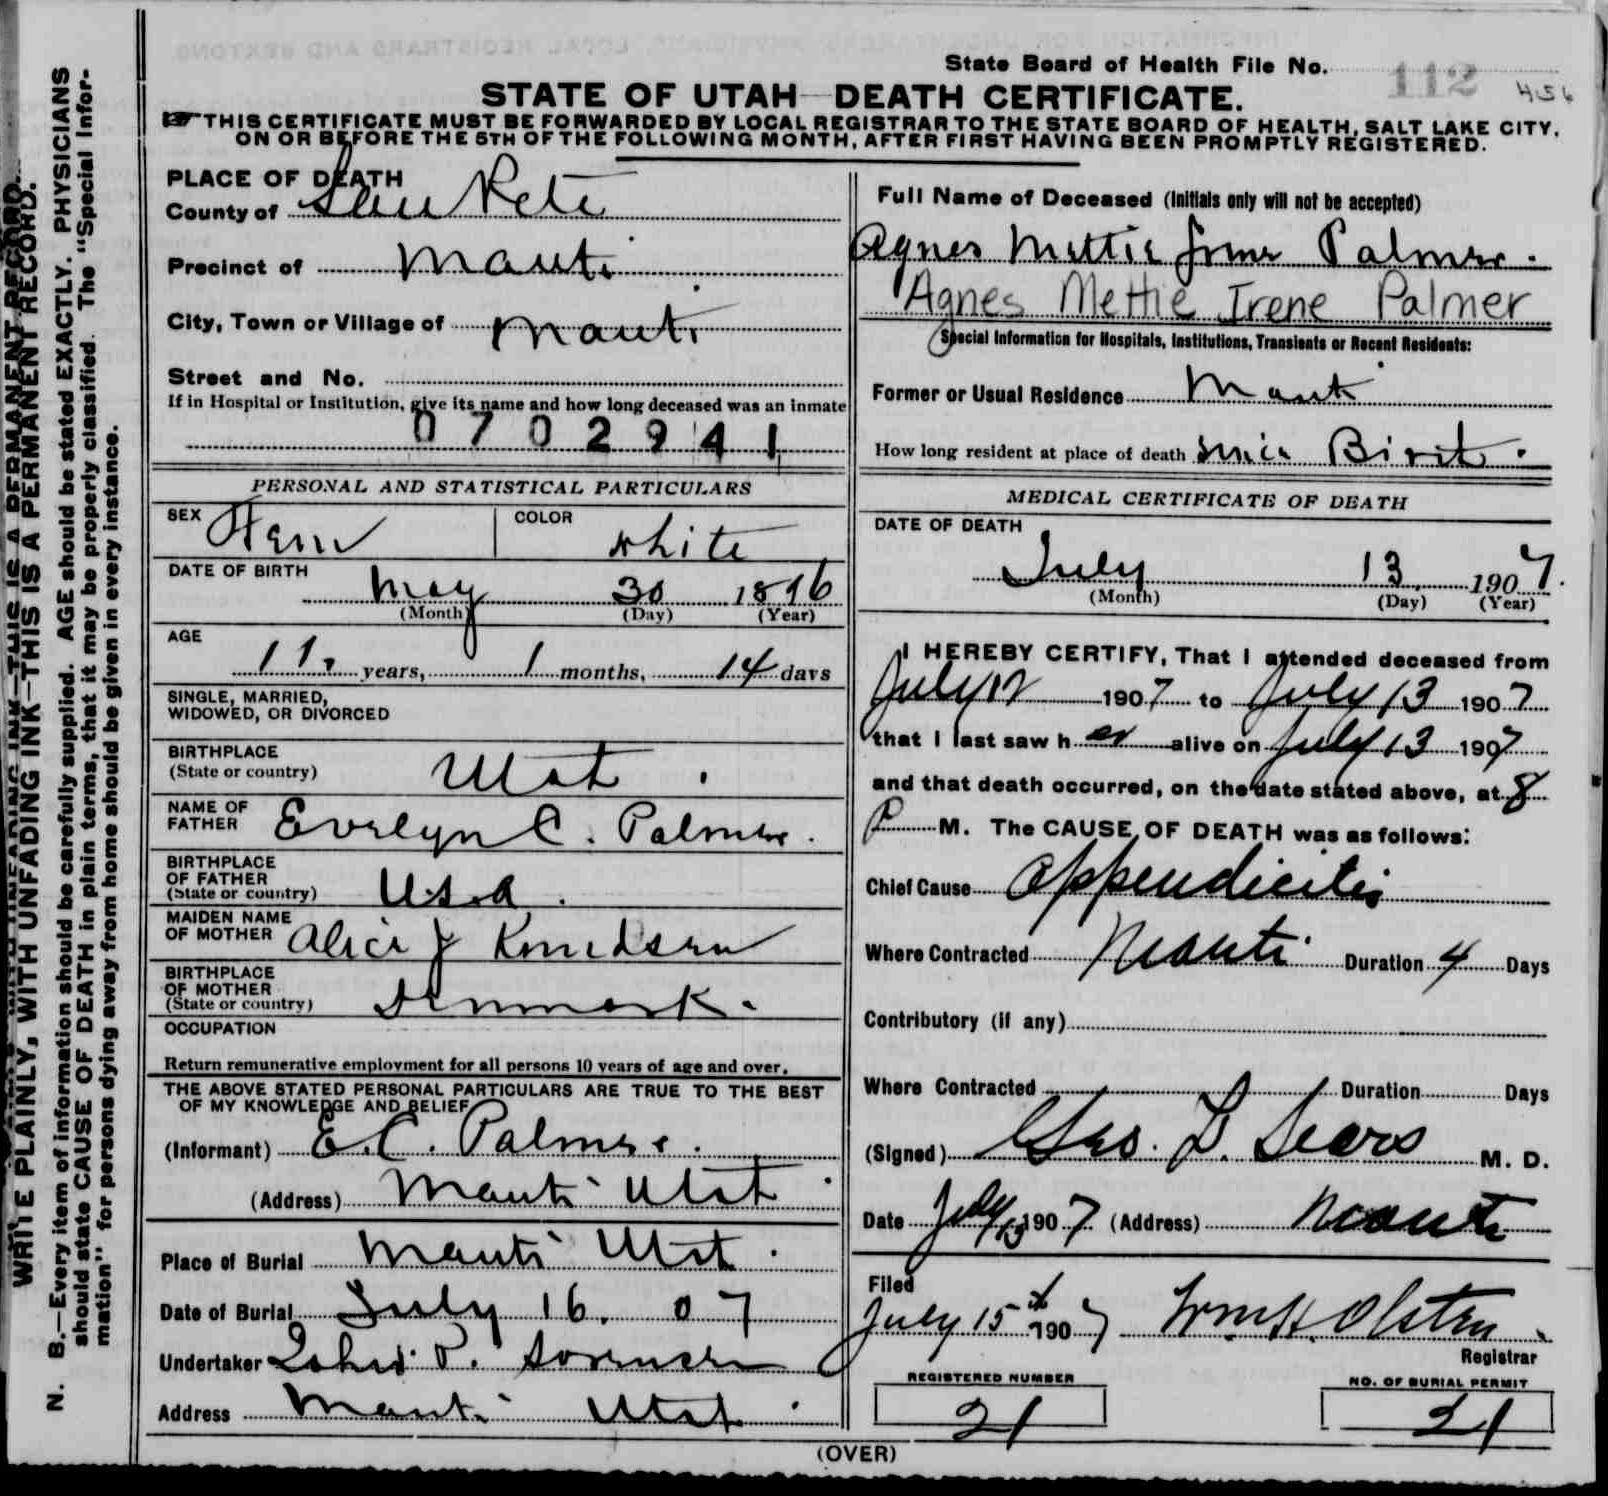 State Board of Health File No. 112 456
STATE OF UTAH—DEATH CERTIFICATE.
THIS CERTIFICATE MUST BE FORWARDED BY LOCAL REGISTRAR TO THE STATE BOARD OF HEALTH, SALT LAKE CITY,
ON OR BEFORE THE 5TH OF THE FOLLOWING MONTH, AFTER FIRST HAVING BEEN PROMPTLY REGISTERED.
WRITE PLAINLY, WITH UNFADING INK—THIS IS A PERMANENT RECORD.
N. B.—Every item of information should be carefully supplied. AGE should be stated EXACTLY. PHYSICIANS
should state CAUSE OF DEATH in plain terms, that it may be properly classified. The "Special Infor-
mation" for persons dying away from home should be given in every instance.
PLACE OF DEATH
County of San Pete
Precinct of Manti
City, Town or Village of Manti
Street and No.
If in Hospital or Institution, give its name and how long deceased was an inmate
0702941
PERSONAL AND STATISTICAL PARTICULARS
SEX Fem COLOR white
DATE OF BIRTH May 30 1896
(Month) (Day) (Year)
AGE 11 years, 1 months, 14 days
SINGLE, MARRIED,
WIDOWED, OR DIVORCED
BIRTHPLACE
(State or country) Utah.
NAME OF
FATHER Evelyn C. Palmer.
BIRTHPLACE
OF FATHER
(State or country) U.S.A.
MAIDEN NAME
OF MOTHER Alice J Knudsen
BIRTHPLACE
OF MOTHER
(State or country) Denmark.
OCCUPATION
Return remunerative employment for all persons 10 years of age and over.
THE ABOVE STATED PERSONAL PARTICULARS ARE TRUE TO THE BEST
OF MY KNOWLEDGE AND BELIEF
(Informant) E. C. Palmer.
(Address) Manti Utah
Place of Burial Manti Utah.
Date of Burial July 16. 07
Undertaker P. Sorensen
Address Manti Utah.
Full Name of Deceased (Initials only will not be accepted)
Agnes Mettie Irene Palmer.
Agnes Mettie Irene Palmer
Special Information for Hospitals, Institutions, Transients or Recent Residents:
Former or Usual Residence Manti
How long resident at place of death since Birth.
MEDICAL CERTIFICATE OF DEATH
DATE OF DEATH
July 13 1907.
(Month) (Day) (Year)
I HEREBY CERTIFY, That I attended deceased from
July 12 1907 to July 13 1907
that I last saw her alive on July 13 1907
and that death occurred, on the date stated above, at 8
P M. The CAUSE OF DEATH was as follows:
Chief Cause Appendicitis
Where Contracted Manti Duration 4 Days
Contributory (if any)
Where Contracted Duration Days
(Signed) Geo. L. Sears M. D.
Date July 13 1907 (Address) Manti
Filed
July 15th 1907 Wm H. Olsten
Registrar
REGISTERED NUMBER
21
NO. OF BURIAL PERMIT
21
(OVER)